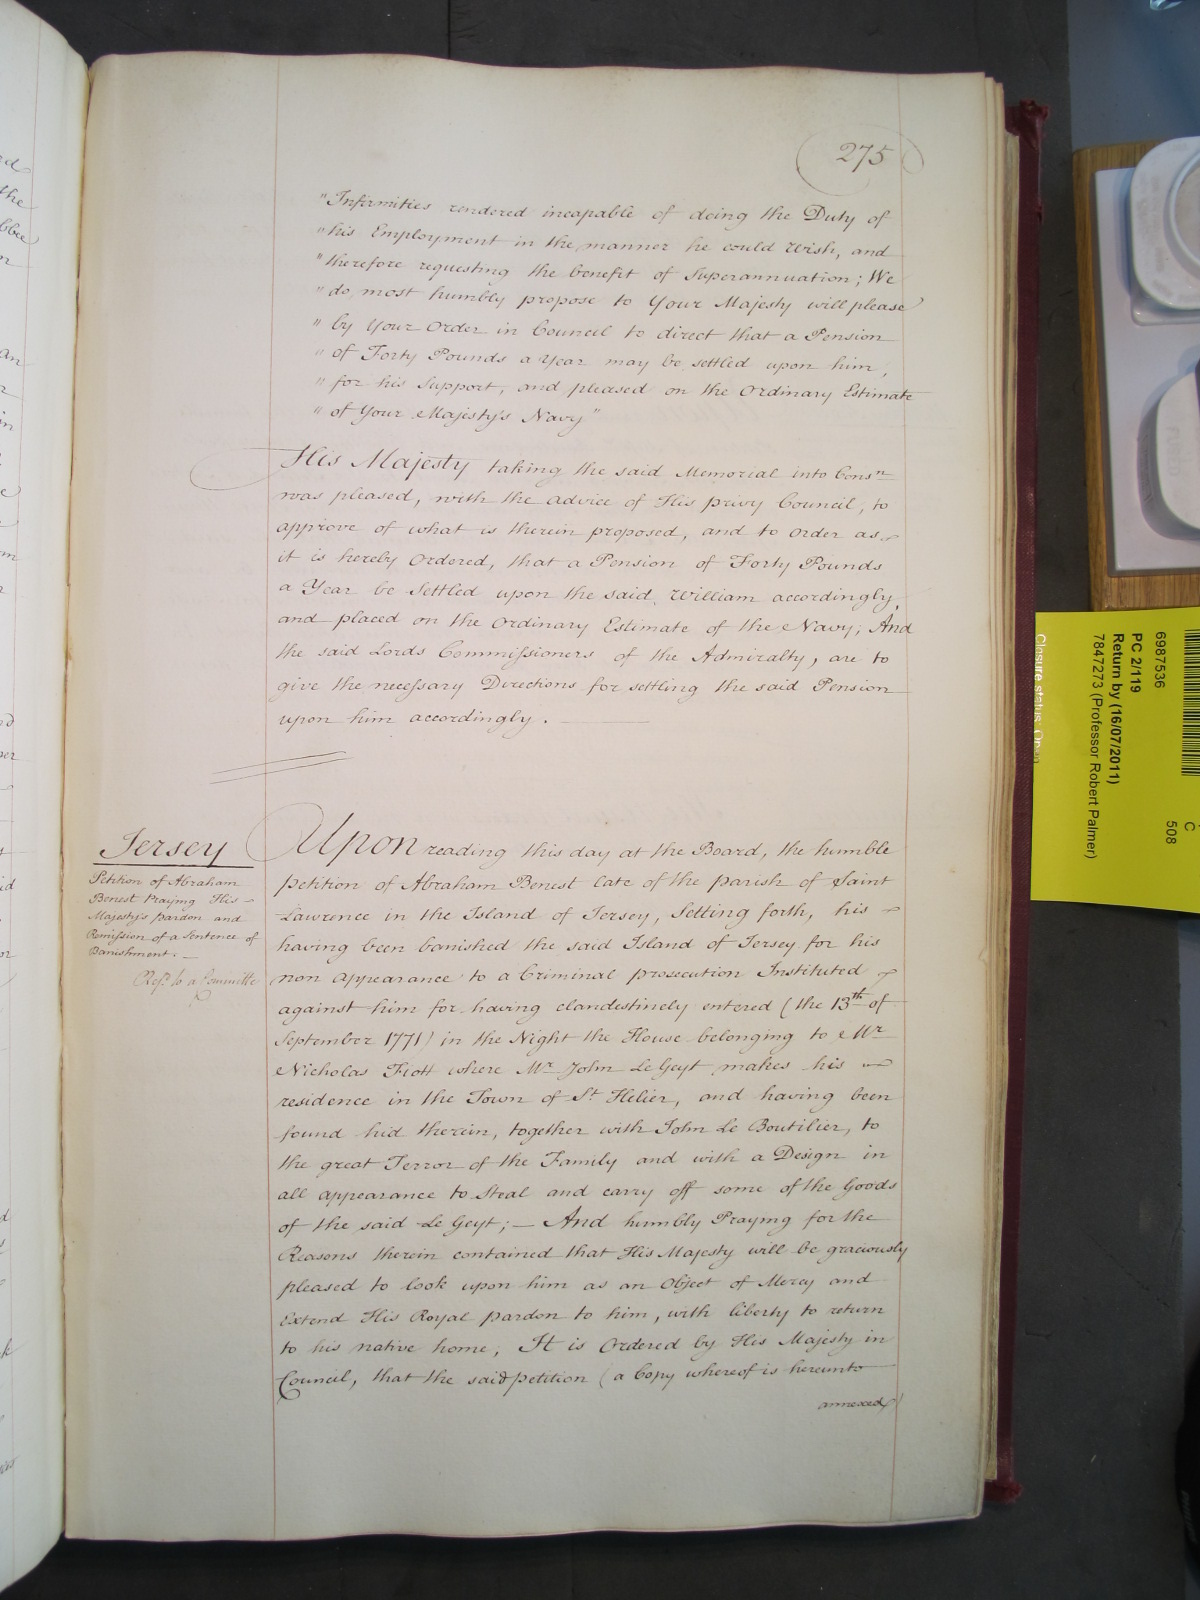 275
"Infirmities rendered incapable of doing the Duty of
"his Employment in the manner he could wish, and
"therefore requesting the benefit of Superannuation; We
"do, most humbly propose to Your Majesty will please
"by Your Order in Council to direct that a Pension
"of Forty Pounds a Year may be settled upon him,
"for his Support, and pleased on the Ordinary Estimate
"of Your Majesty's Navy"
His Majesty taking the said Memorial into Consn
was pleased, with the advice of His privy Council, to
approve of what is therein proposed, and to order as
it is hereby Ordered, that a Pension of Forty Pounds
a Year be Settled upon the said William accordingly,
and placed on the Ordinary Estimate of the Navy; And
the said Lords Commissioners of the Admiralty, are to
give the necessary Directions for settling the said Pension
upon him accordingly.
Jersey
Petition of Abraham
Benest Praying His
Majesty's pardon and
Remission of a Sentence of
Banishment.
Refd. to a Committee
Upon reading this day at the Board, the humble
petition of Abraham Benest late of the parish of Saint
Lawrence in the Island of Jersey, Setting forth, his
having been banished the said Island of Jersey for his
non appearance to a Criminal prosecution Instituted
against him for having clandestinely entered (the 13th of
September 1771) in the Night the House belonging to Mr
Nicholas Fiott where Mr John Le Geyt makes his
residence in the Town of St Helier, and having been
found hid therein, together with John Le Boutilier, to
the great Terror of the Family and with a Design in
all appearance to Steal and carry off some of the Goods
of the said Le Geyt; — And humbly Praying for the
Reasons therein contained that His Majesty will be graciously
pleased to look upon him as an Object of Mercy and
Extend His Royal pardon to him, with liberty to return
to his native home, It is Ordered by His Majesty in
Council, that the said petition (a Copy whereof is hereunto
annexed)
6987536
PC 2/119
Return by (16/07/2011)
7847273 (Professor Robert Palmer)
Closure status: Open
C
508